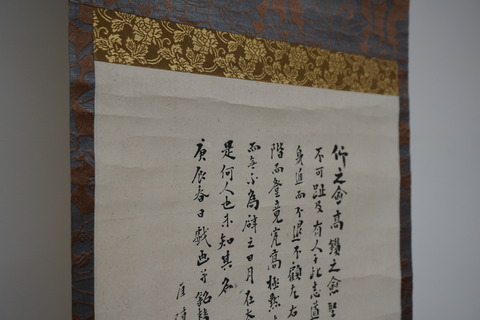 仰之愈高鑽之愈堅
不可趾及有人于此志道
身進而不退不顧左右
階而登竟究高極默
而言不為辟之日月在
是何人也未知其名
庚辰春日戯画並銘